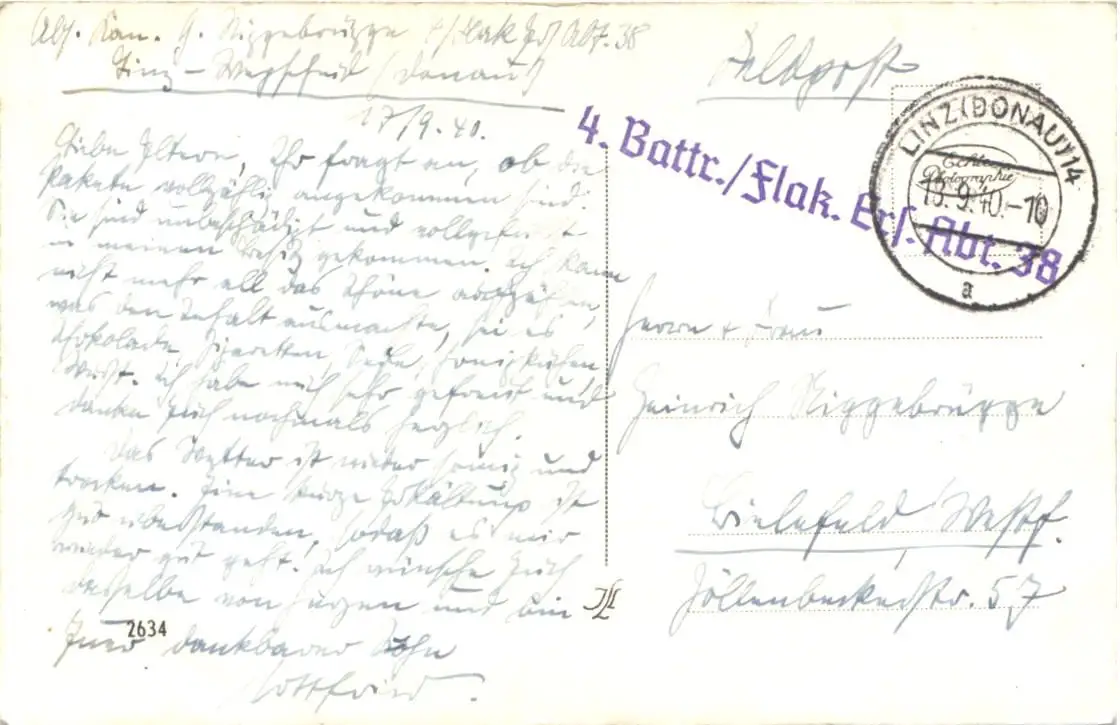 Abs. Kan. G. Niggebrügge 4/Flak Ers Abt. 38
Linz-Wegscheid (Donau)
Feldpost
17/9.40.
4. Battr./Flak. Ers. Abt. 38
LINZ(DONAU)14
18.9.40.-10
a
Echte
Photographie
Liebe Eltern, Ihr fragt an, ob die
Pakete vollzählig angekommen sind.
Sie sind unbeschädigt und
in meinen Besitz gekommen. Ich kann
nicht mehr all das Schöne aufzählen,
was den Inhalt ausmachte, sei es
Schokolade, Zigaretten, Seife, Honigkuchen,
Wurst. Ich habe mich sehr gefreut und
danke Euch nochmals herzlich.
Das Wetter ist weiter sonnig und
trocken. Eine kurze Erkältung ist
gut überstanden, sodaß es mir
wieder gut geht. Ich wünsche Euch
dasselbe von Herzen und bin
Euer dankbarer Sohn
Gottfried.
2634
Herrn + Frau
Heinrich Niggebrügge
Bielefeld, Westf.
Jöllenbeckerstr. 57